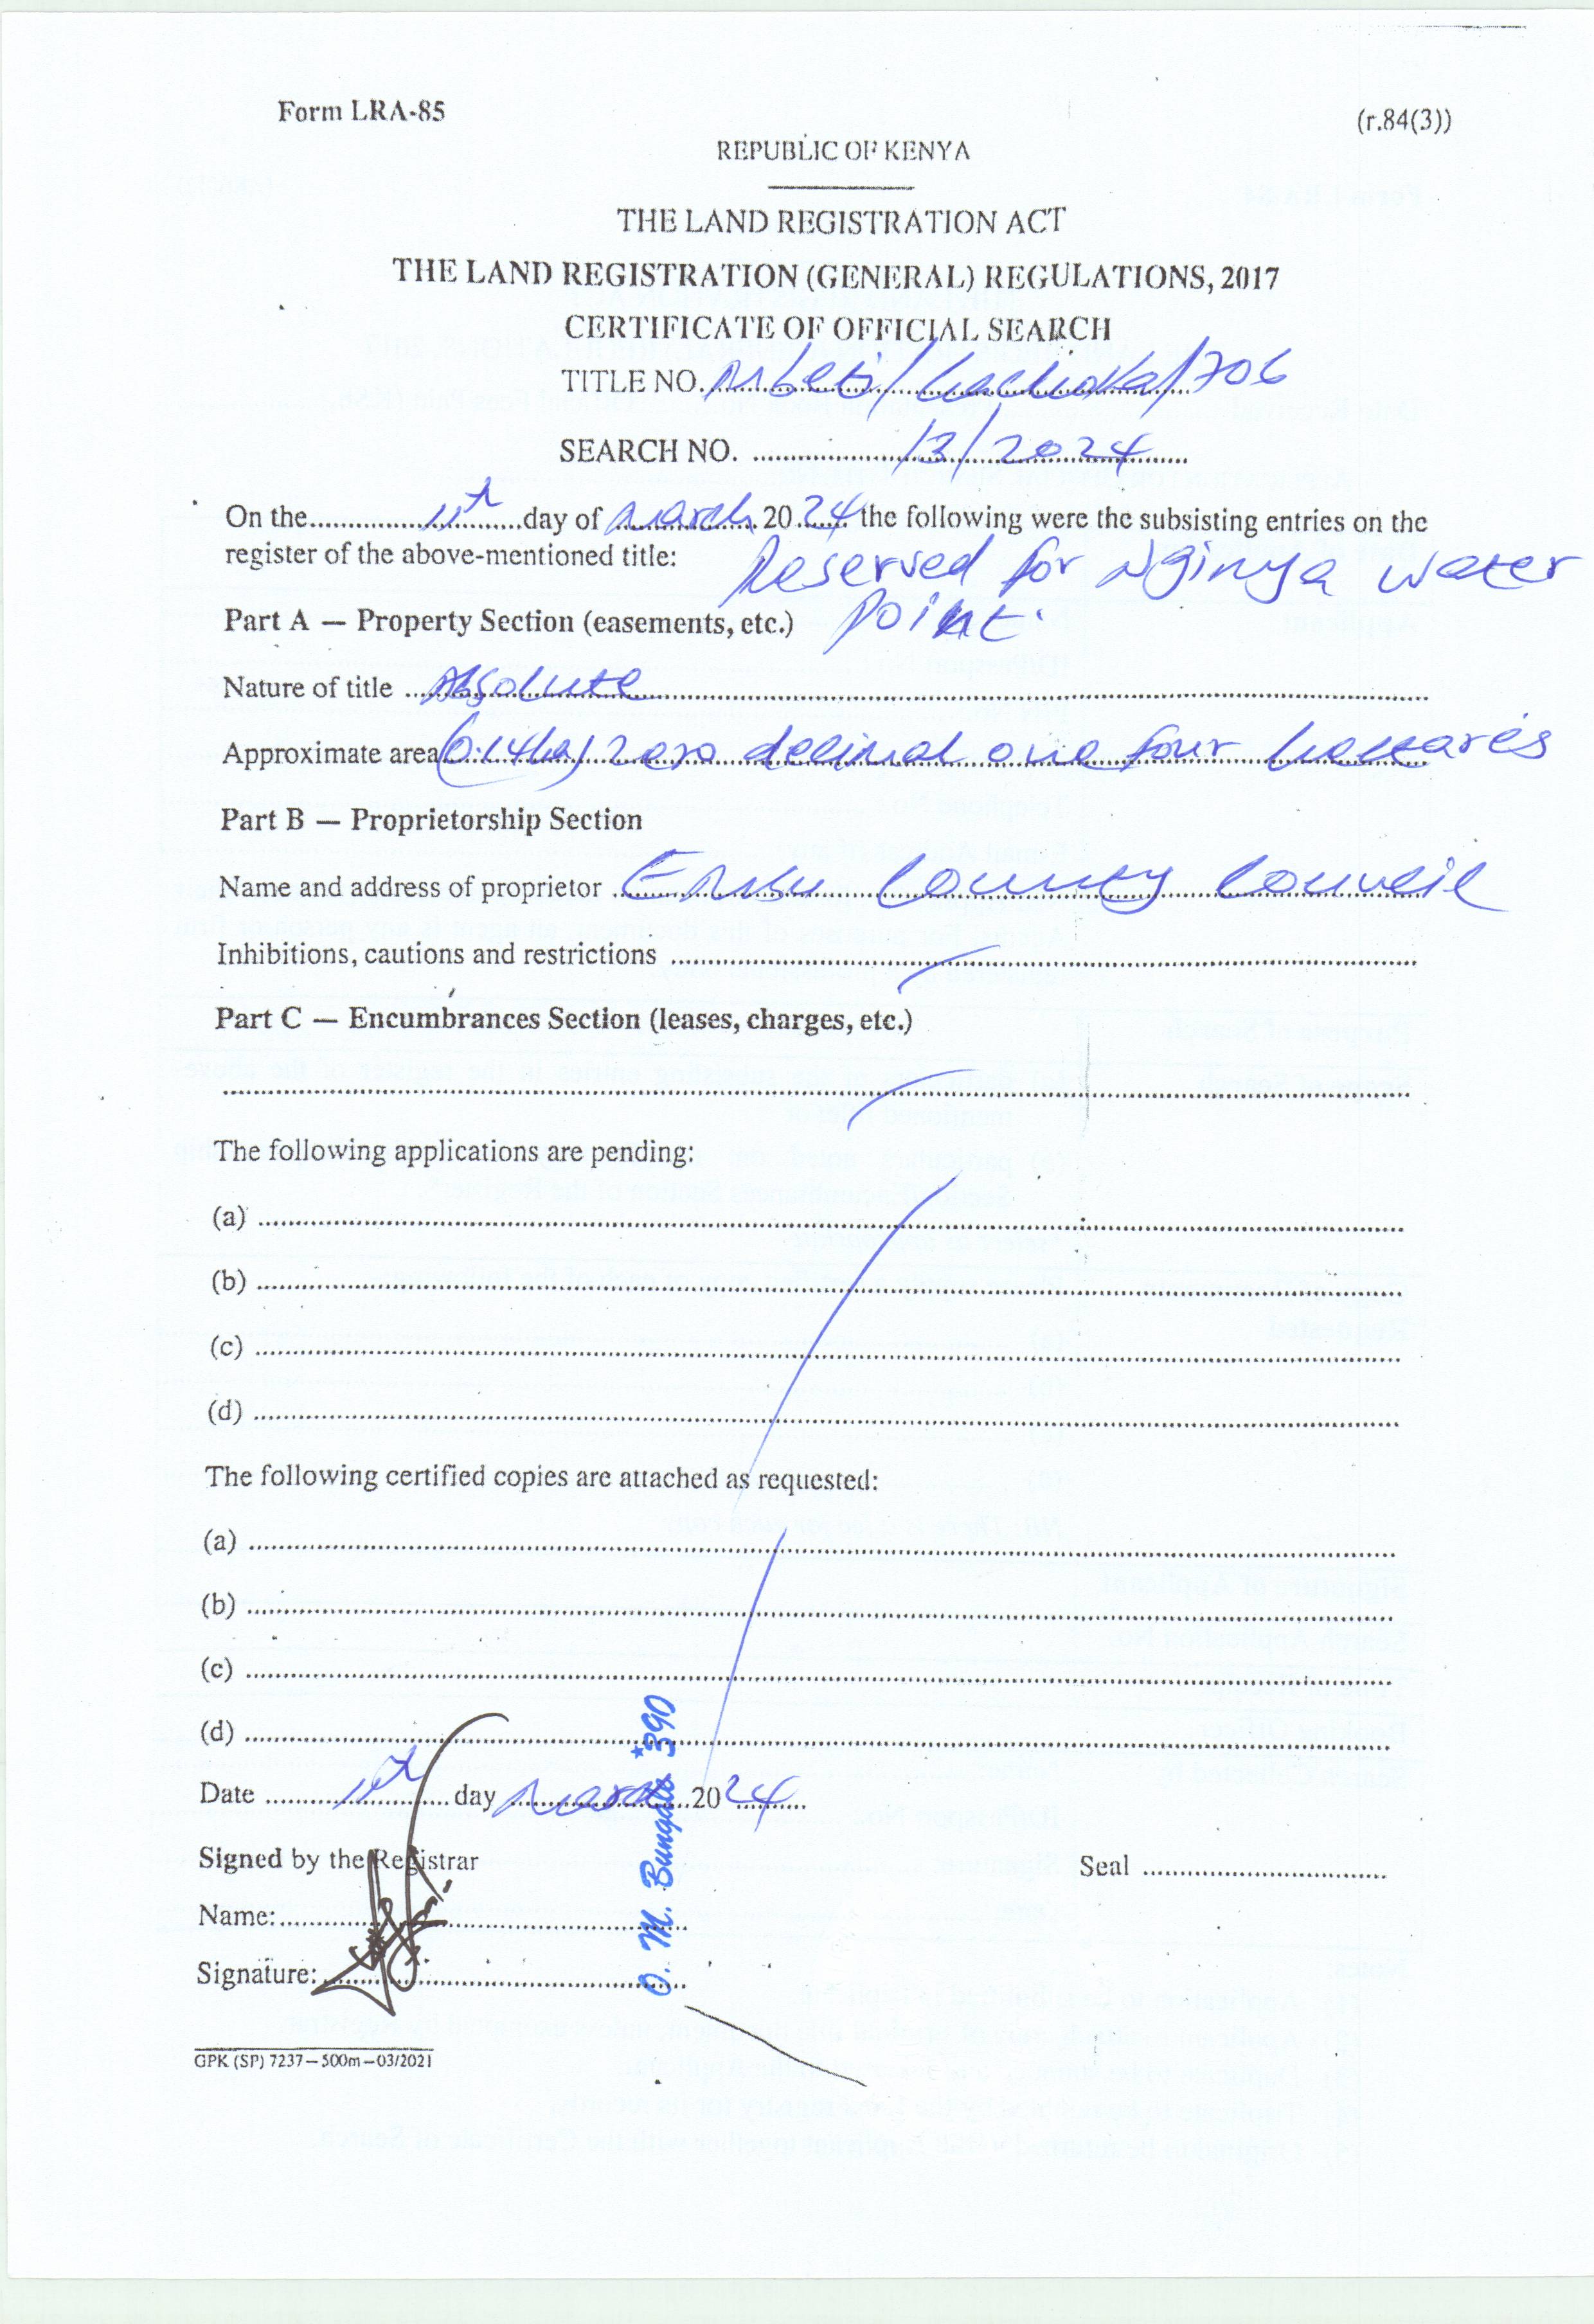 Form LRA-85
(r.84(3))
REPUBLIC OF KENYA
THE LAND REGISTRATION ACT
THE LAND REGISTRATION (GENERAL) REGULATIONS, 2017
CERTIFICATE OF OFFICIAL SEARCH
TITLE NO. Mbeti/Gachoka/706
SEARCH NO. 13/2024
On the 11th day of March 2024 the following were the subsisting entries on the
register of the above-mentioned title: Reserved for Nginya water
Part A — Property Section (easements, etc.) point.
Nature of title Absolute
Approximate area (0.14ha) zero decimal one four hectares
Part B — Proprietorship Section
Name and address of proprietor Embu County Council
Inhibitions, cautions and restrictions
Part C — Encumbrances Section (leases, charges, etc.)
The following applications are pending:
(a)
(b)
(c)
(d)
The following certified copies are attached as requested:
(a)
(b)
(c)
(d)
Date 11th day March 2024
Signed by the Registrar
Seal
Name:
Signature:
O. M. Bungale *390
GPK (SP) 7237—500m—03/2021